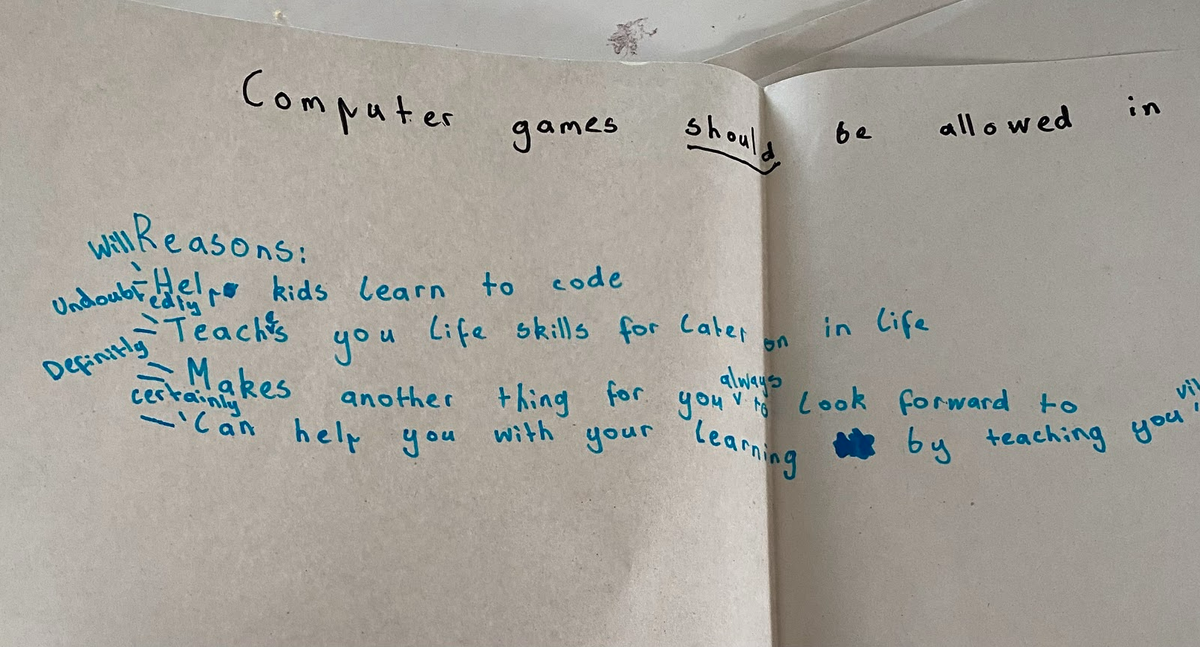 Computer games should be allowed in
Will Reasons:
- Help kids learn to code
Undoubtedly
- Teaches you life skills for later on in life
Definitly
- Makes another thing for you always to look forward to
certainly
- Can help you with your learning by teaching you